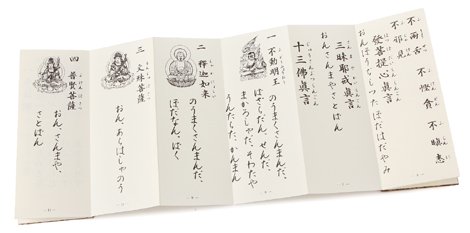 不両舌 不慳貪 不瞋恚
不邪見
發菩提心眞言
おんぼうじしつた ぼだはだやみ
三昧耶戒眞言
おん さんまや さとばん
十三佛眞言
一 不動明王
のうまくさんまんだ、
ばさらだん、せんだ、
まかろしゃだ、そわたや
うんたらた、かんまん
二 釋迦如来
のうまくさんまんだ、
ぼだなん、ばく
三 文殊菩薩
おん、あらはしゃのう
四 普賢菩薩
おん、さんまや、
さとばん